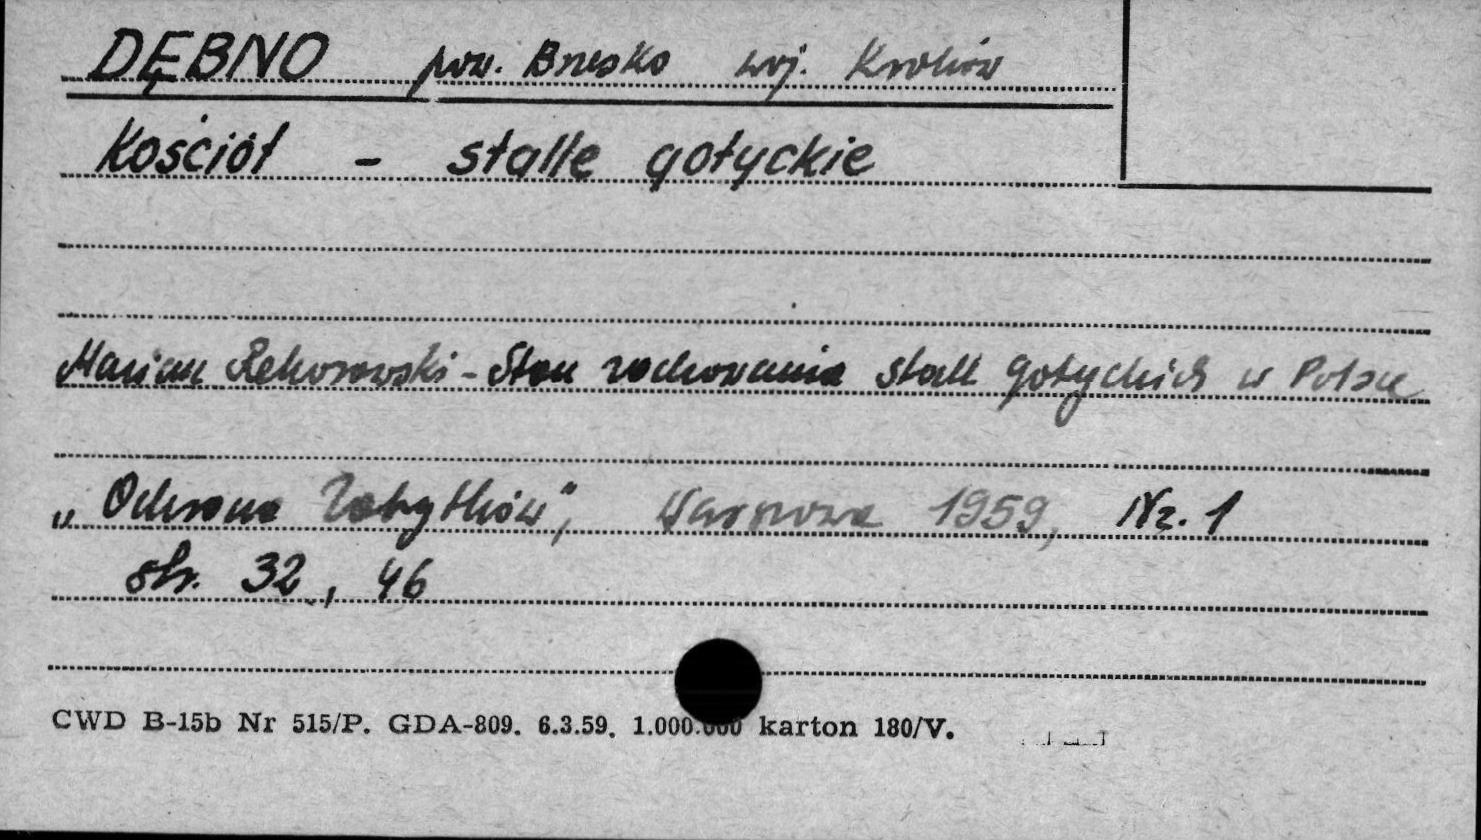 DĘBNO pow. Brzesko woj. Kraków
Kościół - stalle gotyckie
Marian Rehorowski - Stan zachowania stall gotyckich w Polsce
„Ochrona Zabytków”, Warszawa 1959, Nr. 1
str. 32, 46
CWD B-15b Nr 515/P. GDA-809. 6.3.59. 1.000.000 karton 180/V.